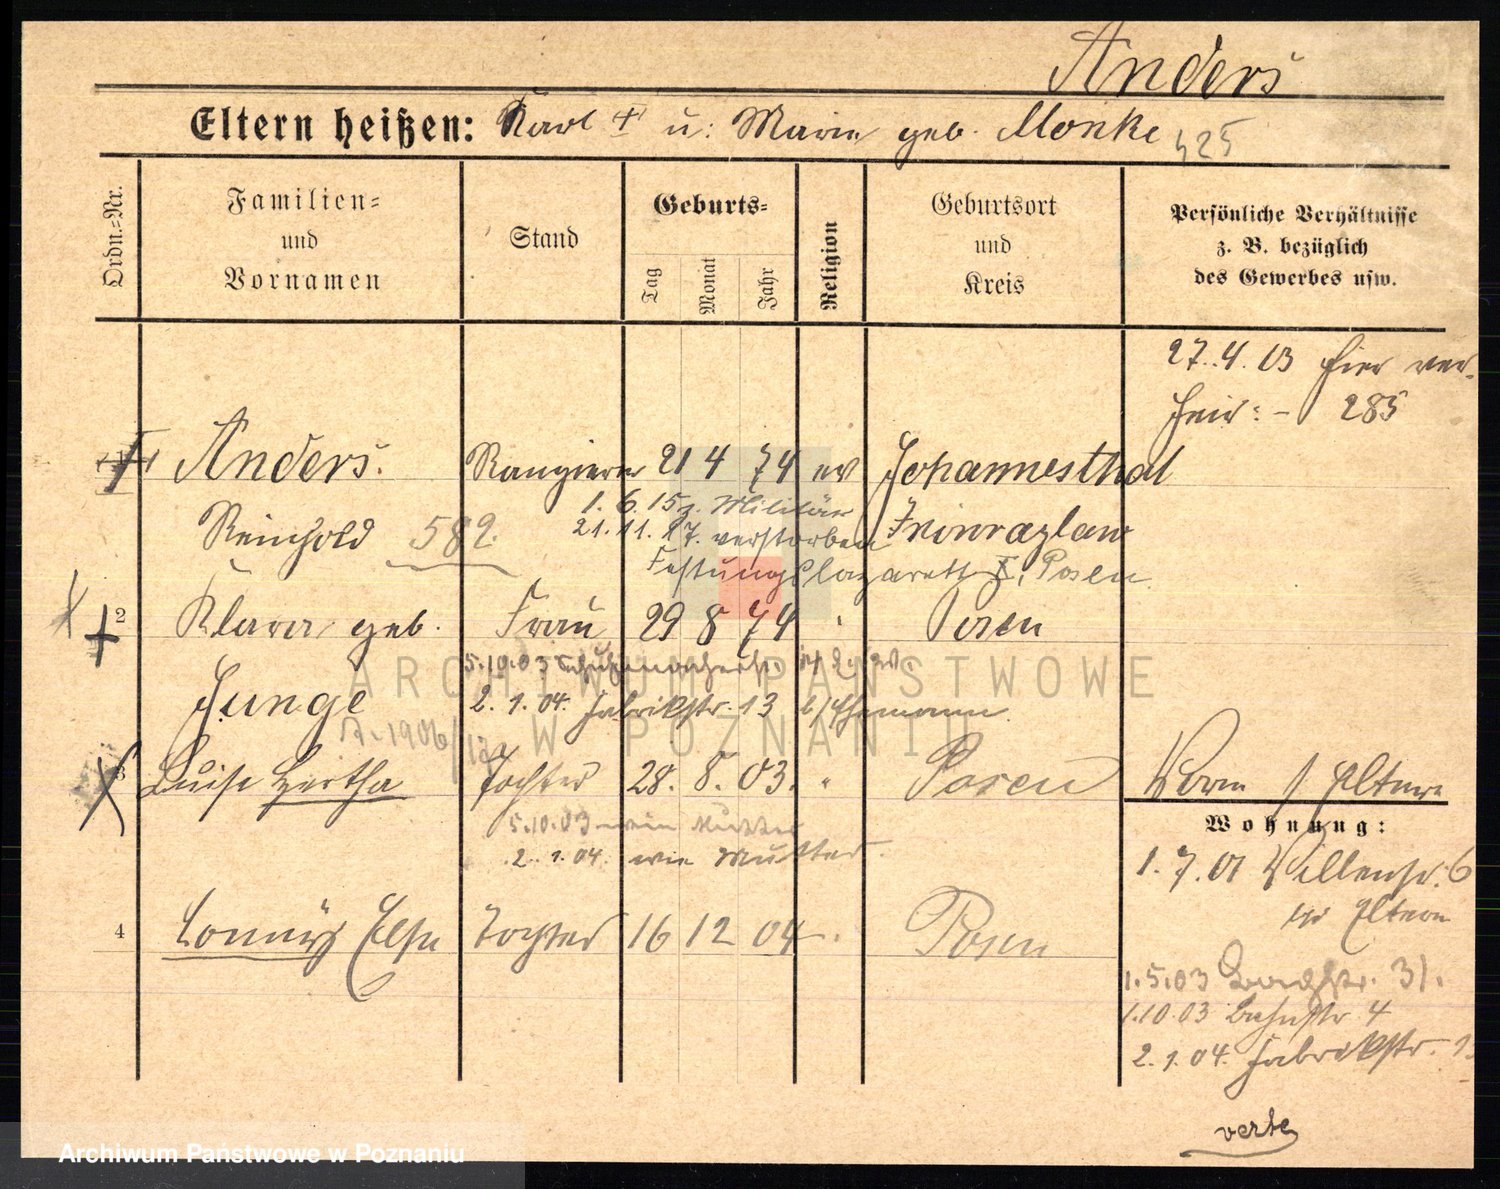 Anders
Eltern heißen: Karl † u: Marie geb. Monke 425
Ordn.=Nr.
Familien=
und
Vornamen
Stand
Geburts=
Tag
Monat
Jahr
Religion
Geburtsort
und
Kreis
Persönliche Verhältnisse
z. B. bezüglich
des Gewerbes usw.
27.4.03 hier ver-
heir: - 285
1 Anders. Rangierer 21 4 74 ev Johannesthal
1.6.15 z. Militär
Reinhold 582. 21.11.17. verstorben Inowrazlaw
Festungslazarett I, Posen
2 Klara geb. Frau 29 8 74 Posen
5.10.03
Junge 2.1.04. Fabrikstr. 13 b/Ehemann.
A. 1906/
3 Luise Hertha Tochter 28. 8. 03. " Posen
5.10.03 wie Mutter
2.1.04. wie Mutter.
Eltern
Wohnung:
1.7.01 6
Eltern
4 Elsa Tochter 16 12 04 Posen
1.5.03 31.
1.10.03 Bahnstr. 4
2.1.04. Fabrikstr.
verte
ARCHIWUM PAŃSTWOWE
W POZNANIU
Archiwum Państwowe w Poznaniu